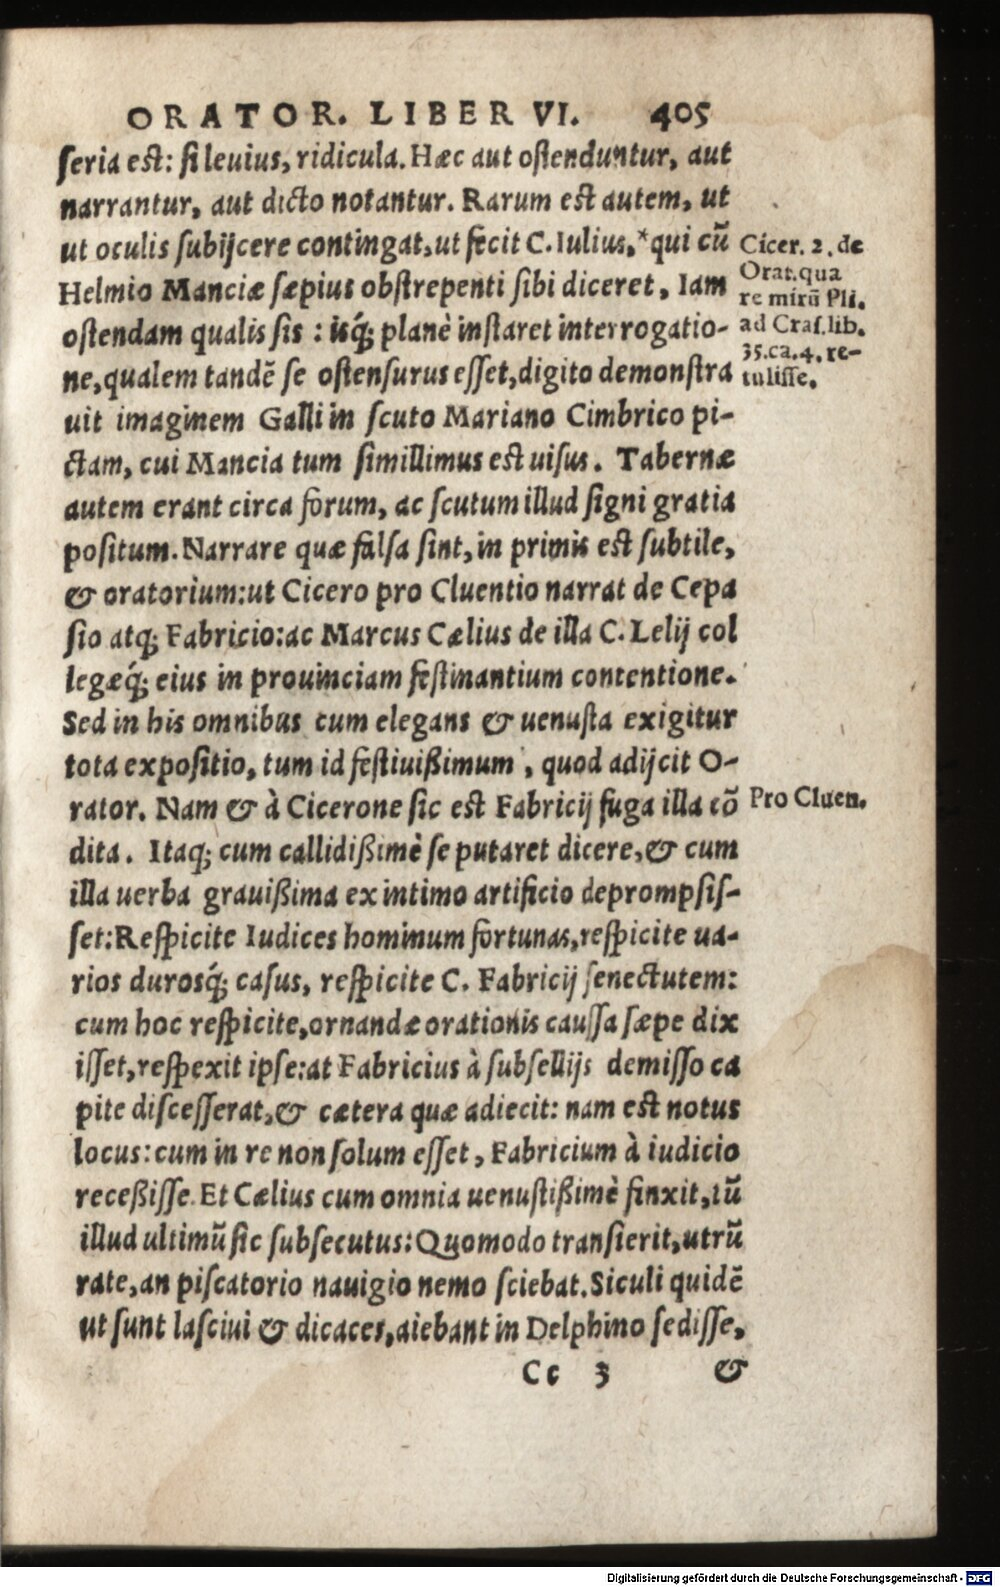 ORATOR. LIBER VI. 405
ſeria est: ſi leuius, ridicula. Hæc aut oſtenduntur, aut
narrantur, aut dicto notantur. Rarum est autem, ut
ut oculis ſubijcere contingat, ut fecit C. Iulius,* qui cū
Helmio Manciæ ſæpius obſtrepenti ſibi diceret, Iam
oſtendam qualis ſis: isq́; planè inſtaret interrogatio-
ne, qualem tandē ſe oſtenſurus eſſet, digito demonſtra
uit imaginem Galli in ſcuto Mariano Cimbrico pi-
ctam, cui Mancia tum ſimillimus est uiſus. Tabernæ
autem erant circa forum, ac ſcutum illud ſigni gratia
poſitum. Narrare quæ falſa ſint, in primis est ſubtile,
& oratorium: ut Cicero pro Cluentio narrat de Cepa
ſio atq; Fabricio: ac Marcus Cælius de illa C. Lelij col
legæq́; eius in prouinciam feſtinantium contentione.
Sed in his omnibus cum elegans & uenuſta exigitur
tota expoſitio, tum id feſtiuißimum, quod adijcit O-
rator. Nam & à Cicerone ſic est Fabricij fuga illa cō
dita. Itaq; cum callidißimè ſe putaret dicere, & cum
illa uerba grauißima ex intimo artificio deprompſiſ-
ſet: Reſpicite Iudices hominum fortunas, reſpicite ua-
rios durosq́; caſus, reſpicite C. Fabricij ſenectutem:
cum hoc reſpicite, ornandæ orationis cauſſa ſæpe dix
iſſet, reſpexit ipſe: at Fabricius à ſubſellijs demiſſo ca
pite diſceſſerat, & cætera quæ adiecit: nam est notus
locus: cum in re non ſolum eſſet, Fabricium à iudicio
receßiſſe. Et Cælius cum omnia uenuſtißimè finxit, tū
illud ultimū ſic ſubſecutus: Quomodo tranſierit, utrū
rate, an piſcatorio nauigio nemo ſciebat. Siculi quidē
ut ſunt laſciui & dicaces, aiebant in Delphino ſediſſe,
Cc 3 &
Cicer. 2. de
Orat. qua
re mirū Pli.
ad Craſ. lib.
35. ca. 4. re-
tuliſſe.
Pro Cluen.
Digitalisierung gefördert durch die Deutsche Forschungsgemeinschaft - DFG